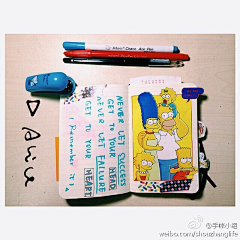 NEVER LET SUCCESS
GET TO YOUR HEAD
NEVER LET FAILURE
GET TO YOUR HEART
I Remember it!
@手帐小组
weibo.com/shouzhanglife